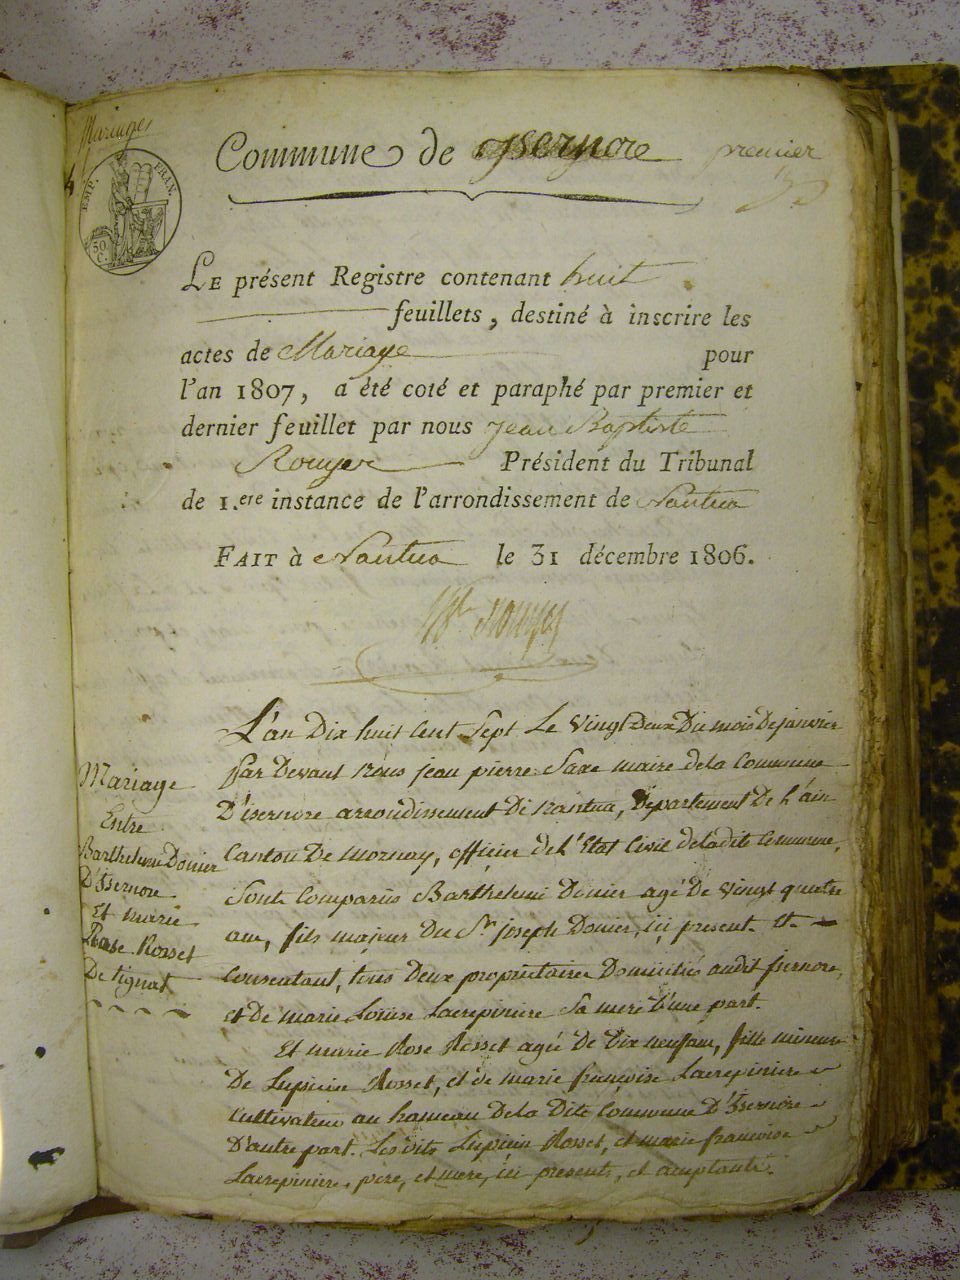 Mariages
Commune de Ysernore premier
EMP. FRAN.
50 C.
LE présent Registre contenant huit
feuillets, destiné à inscrire les
actes de Mariage pour
l'an 1807, a été coté et paraphé par premier et
dernier feuillet par nous Jean Baptiste
Rouyer Président du Tribunal
de 1.ere instance de l'arrondissement de Nantua
FAIT à Nantua le 31 décembre 1806.
L'an Dix huit Cent Sept Le Vingt Deux Du mois De janvier
par Devant Nous jean pierre Saxe maire de la Commune
D'isernore arrondissement De Nantua, Departement De L'ain
Canton De Mornay, officier de L'Etat Civil de la dite Commune,
Sont Comparus Barthelemi Donier agé De Vingt quatre
ans, fils majeur Du Sr joseph Donier, ici present et
Consentant, tous Deux propriétaires Domiciliés audit isernore,
et De Marie Louise Lacrepiniere Sa mere D'une part.
Et marie Rose Rosset agée De Dix neuf ans, fille mineure
De Lupicin Rosset, et de marie françoise Lacrepiniere
Cultivateur au hameau De la Dite Commune D'Isernore
D'autre part. Les dits Lupicin Rosset, et marie francoise
Lacrepiniere, pere, et mere, ici presents, et acceptants.
Mariage
Entre
Barthelemi Donier
D'Isernore
Et marie
Rose Rosset
De tignat